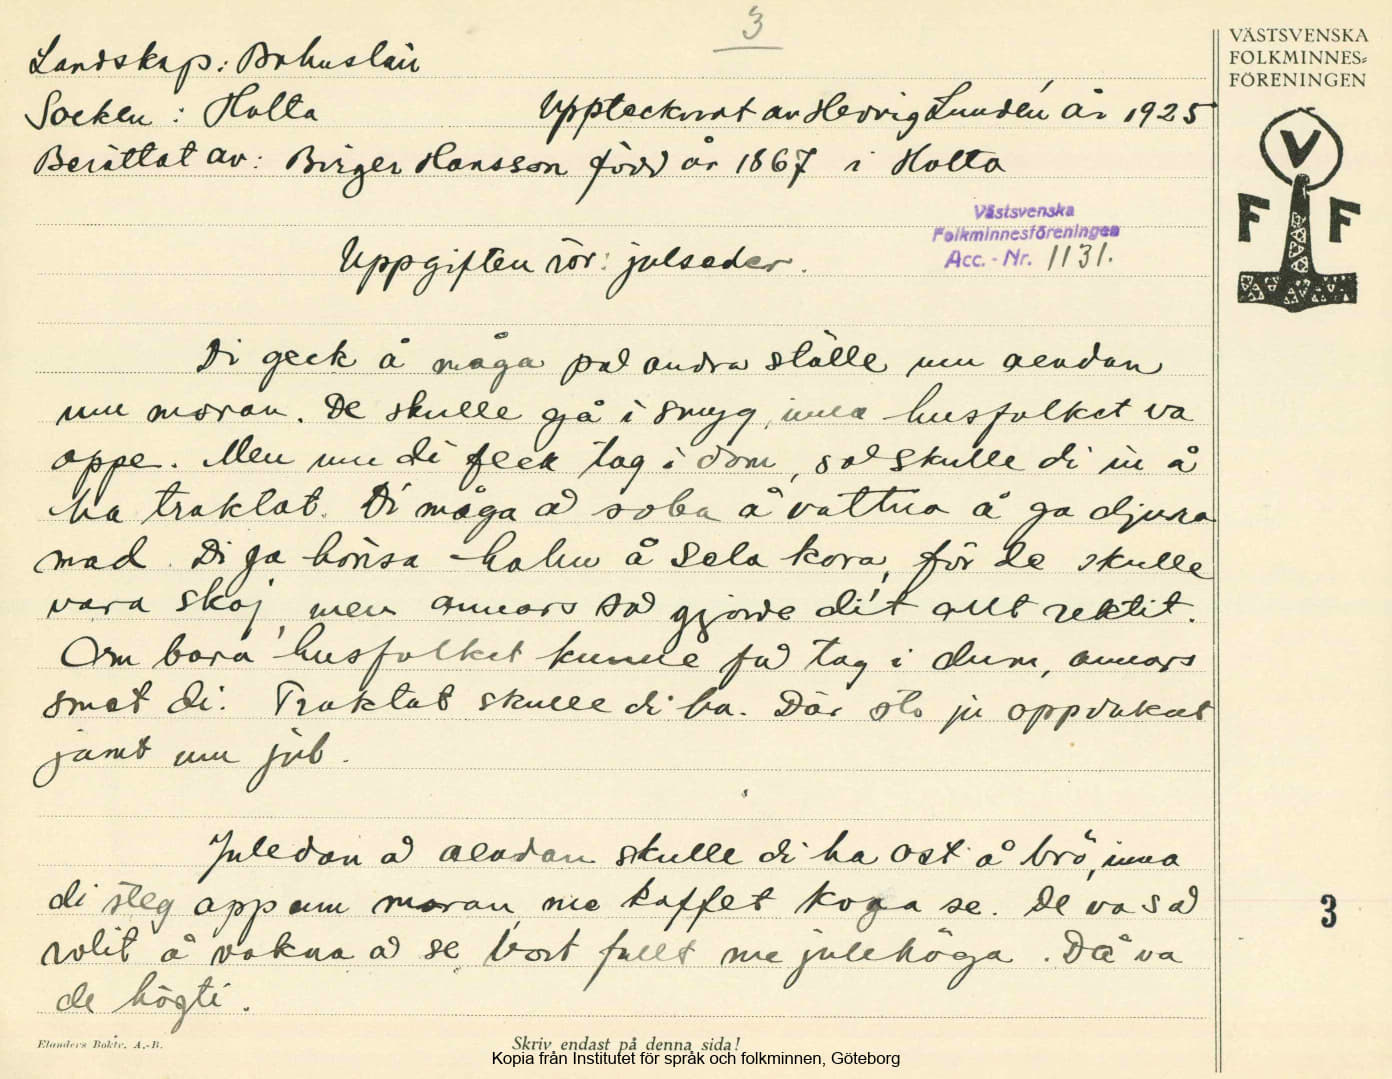 3
VÄSTSVENSKA
FOLKMINNES=
FÖRENINGEN
V
F F
Landskap: Bohuslän
Socken: Holta Upptecknat av Hedvig Lundén år 1925
Berättat av: Birger Hansson född år 1867 i Holta
Västsvenska
Folkminnesföreningen
Acc. - Nr. 1131.
Uppgiften rör: julseder.
Di geck å måga på andra ställe um aendan
um moran. De skulle gå i smyg, inna husfolket va
oppe. Men um di feck tag i dom, så skulle di in å
ha traktat. Di måga å soba å vattna å ga djura
mad. Di ga hönsa halm å sela kora, för de skulle
vara skoj, men annars så gjorde di't allt rektit.
Om bara husfolket kunne få tag i dum, annars
smet di. Traktat skulle di ha. Där sto ju oppdukat
jamt um jul.
Juledan å aendan skulle di ha ost å brö, inna
di steg opp um moran, me kaffet koga se. De va så
rolit å vakna å se bort fullt me julehöga. Då va
de högti.
3
Elanders Boktr. A.-B.
Skriv endast på denna sida!
Kopia från Institutet för språk och folkminnen, Göteborg